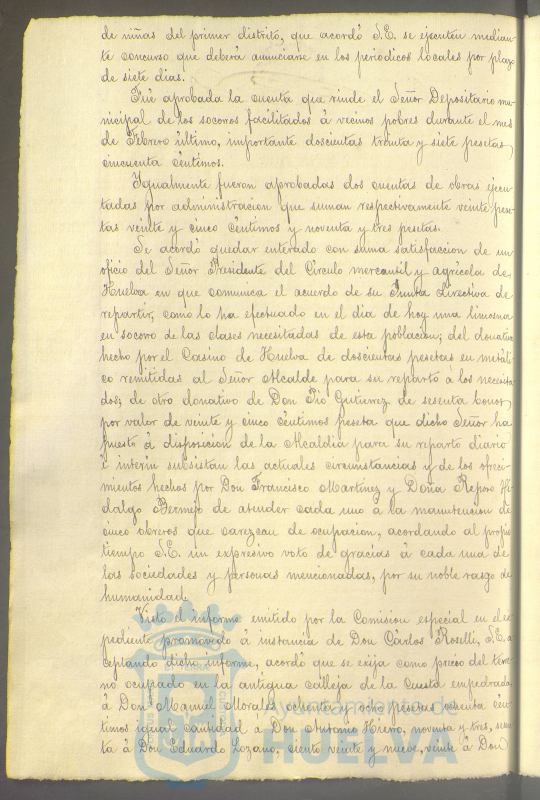 de niñas del primer distrito, que acordó S.E. se ejecuten median-
te concurso que deberá anunciarse en los periodicos locales por plazo
de siete dias.
Fué aprobada la cuenta que rinde el Señor Depositario mu-
nicipal de los socorros facilitados á vecinos pobres durante el mes
de Febrero último, importante doscientas treinta y siete pesetas,
cincuenta céntimos.
Igualmente fueron aprobadas dos cuentas de obras ejecu-
tadas por administracion que suman respectivamente veinte pese-
tas veinte y cinco céntimos y noventa y tres pesetas.
Se acordó quedar enterado con suma satisfaccion de un
oficio del Señor Presidente del Circulo mercantil y agrícola de
Huelva en que comunica el acuerdo de su Junta Directiva de
repartir, como lo ha efectuado en el dia de hoy una limosna
en socorro de las clases necesitadas de esta poblacion; del donativo
hecho por el Casino de Huelva de doscientas pesetas en metáli-
co remitidas al Señor Alcalde para su reparto á los necesita-
dos; de otro donativo de Don Pio Gutierrez de sesenta bonos
por valor de veinte y cinco céntimos peseta que dicho Señor ha
puesto á disposicion de la Alcaldia para su reparto diario
é interin subsistan las actuales circunstancias y de los ofreci-
mientos hechos por Don Francisco Martinez y Doña Reposo Hi-
dalgo Bermejo de atender cada uno á la manutencion de
cinco obreros que carezcan de ocupacion, acordando al propio
tiempo S.E. un expresivo voto de gracias á cada una de
las sociedades y personas mencionadas, por su noble rasgo de
humanidad.
Visto el informe emitido por la Comision especial en el ex-
pediente promovido á instancia de Don Cárlos Roselli, S.E. a-
ceptando dicho informe, acordó que se exija como precio del terre-
no ocupado en la antigua calleja de la Cuesta empedrada,
á Don Manuel Morales ochenta y ocho pesetas ochenta cén-
timos igual cantidad á Don Antonio Hierro, noventa y tres, sesen-
ta á Don Eduardo Lozano, ciento veinte y nueve, veinte á Don
Ayuntamiento de
HUELVA